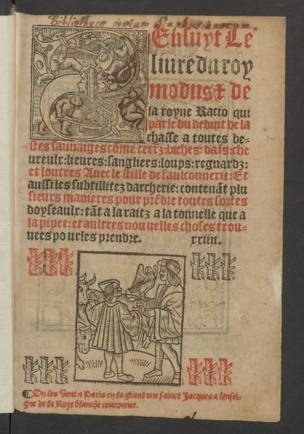 Ensuyt Le
liure du roy
modus et de
la royne Racio qui
parle du deduit de la
chasse a toutes be-
stes sauuaiges cōme cerfz: biches: dais: che
ureulx: lieures: sangliers: loups: regnardz:
et loutres Auec le stille de faulconnerie: Et
aussi les subtilitez darcherie: contenāt plu
sieurs manieres pour prēdre toutes sortes
doyseaulx: tāt a la raitz a la tonnelle que a
la pipee: et aultres nouuelles choses trou-
uees pour les prendre. xxiiii.
On les vent a Paris en la grant rue sainct Jacques a lensei-
gne de la Roze blanche couronnee.